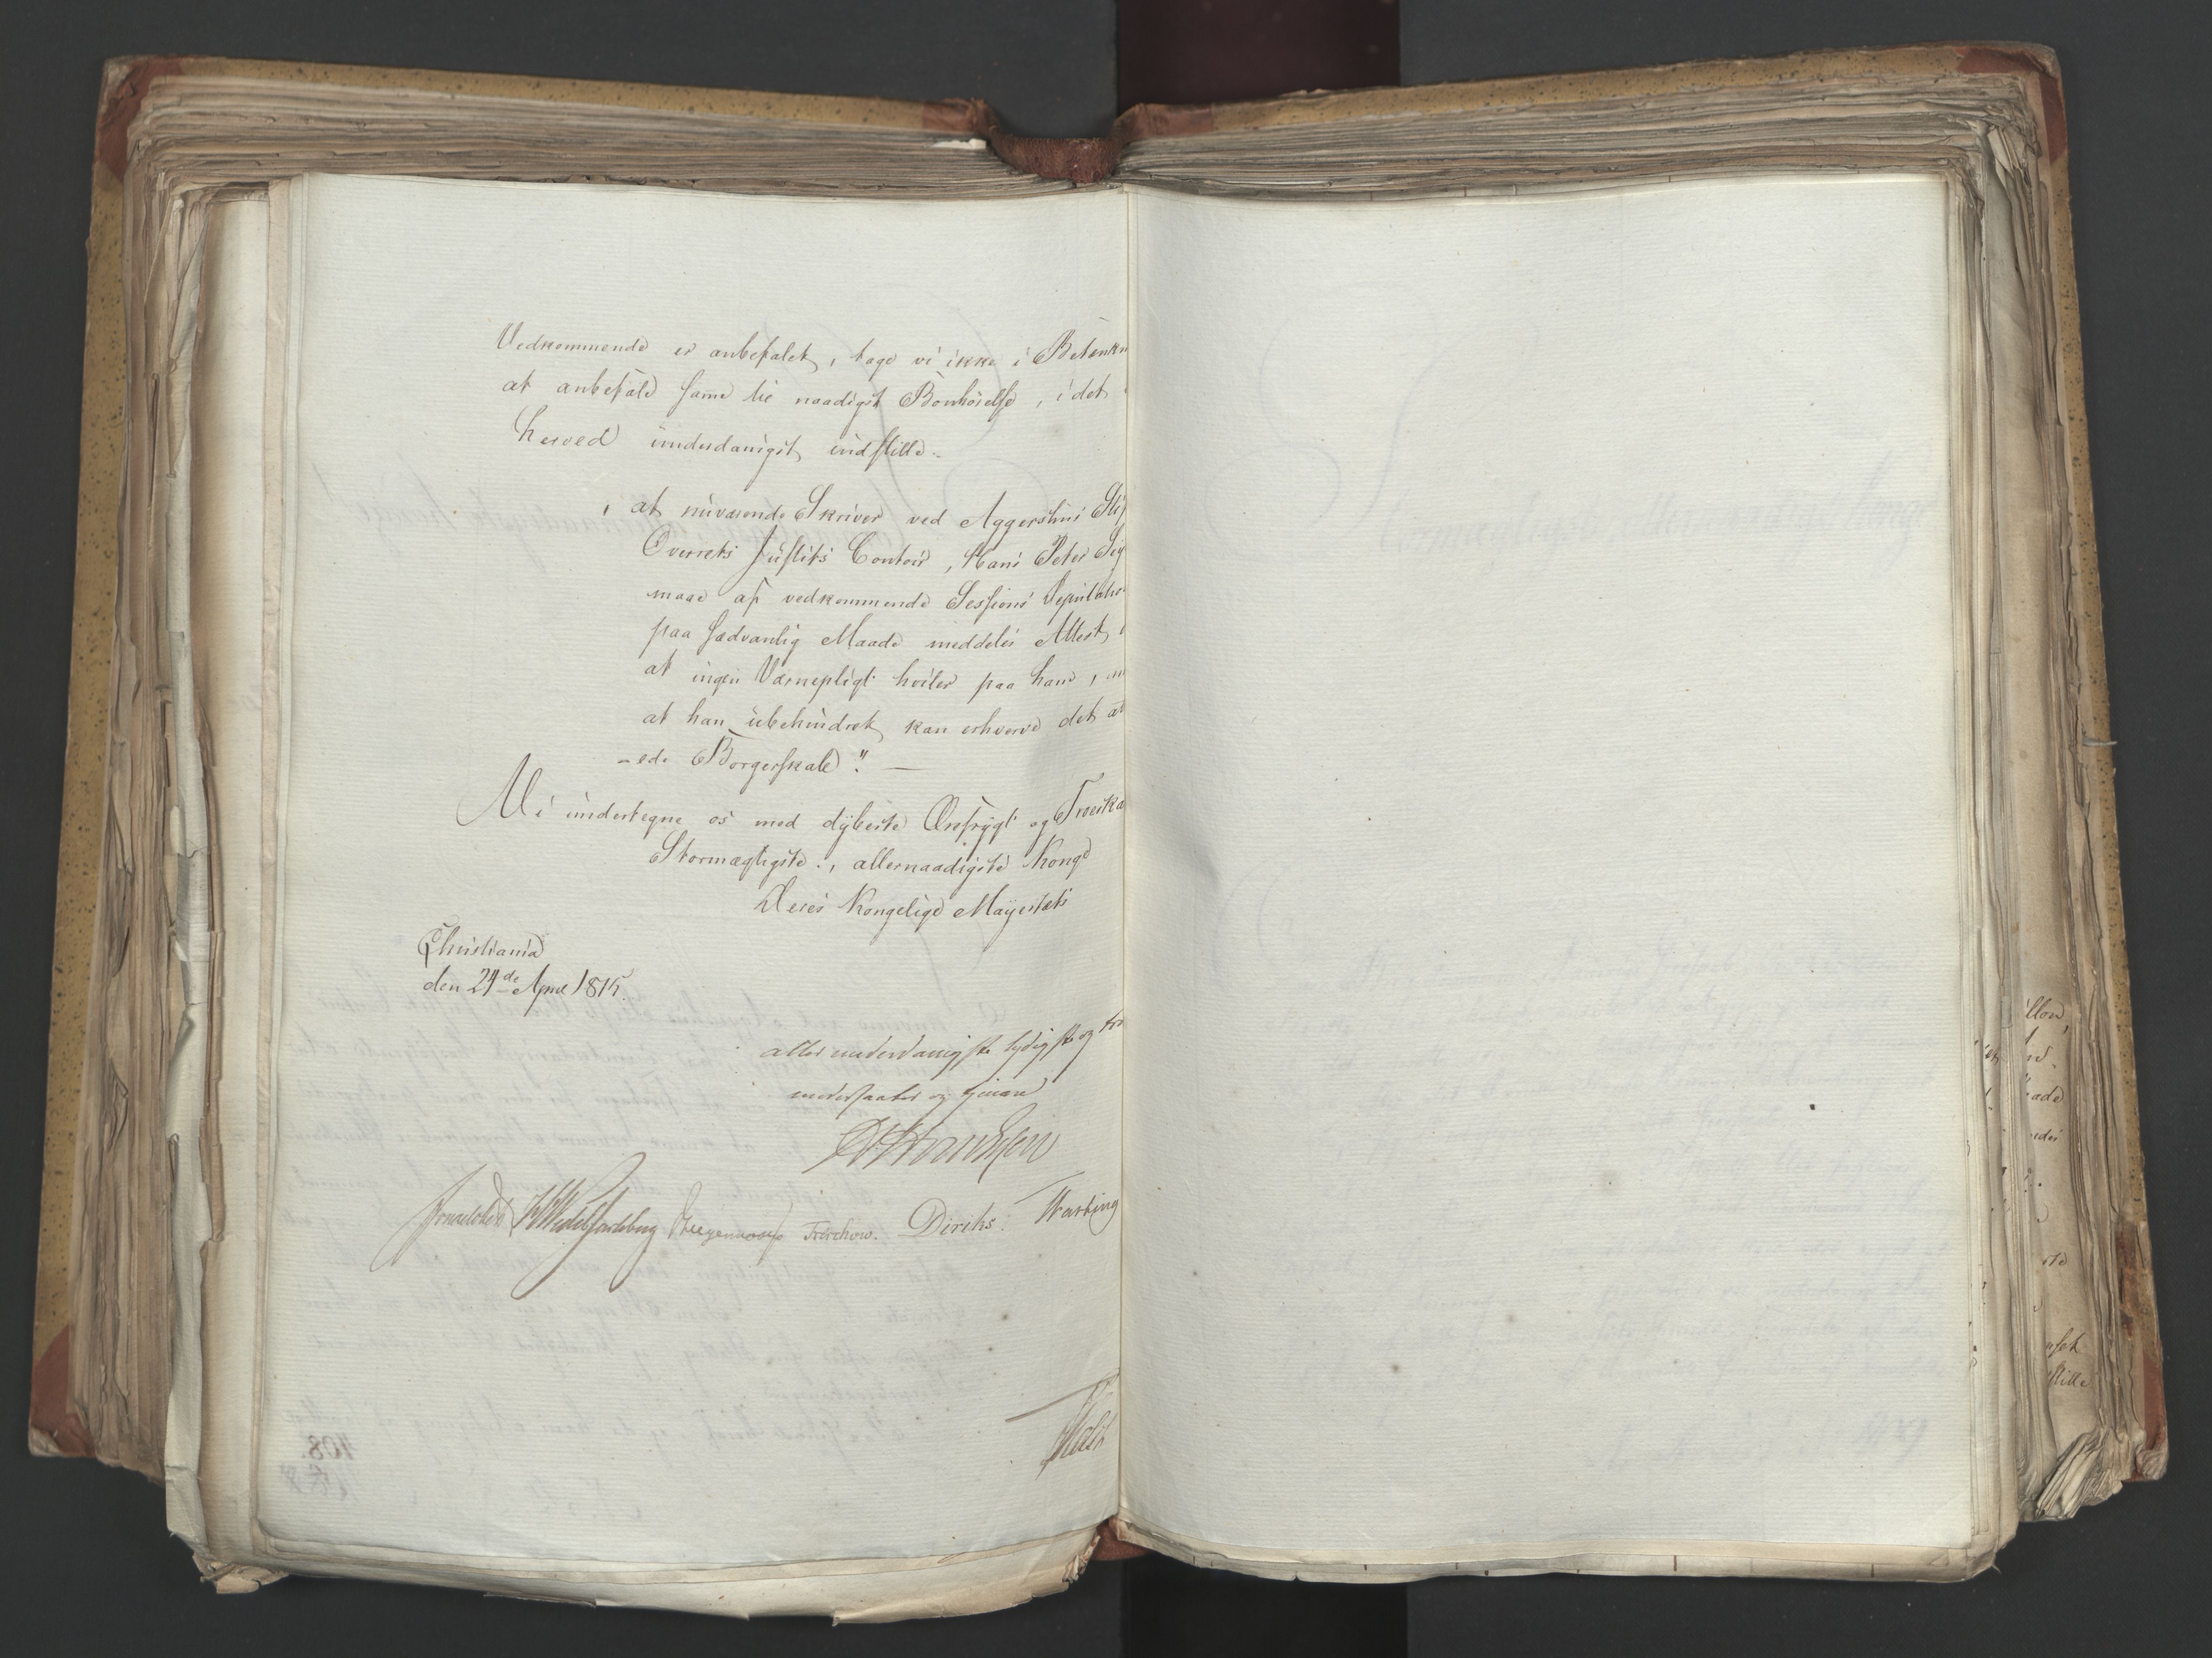 Vedkommende er anbefalet, tage vi ikke i Betænkn
at anbefale samme til naadigst Bønhørelse, i det
herved underdanigst indstille.
, at nuværende Skriver ved Aggershus Stif
Overrets Justits Contoir, Hans Peter
maae af vedkommende Sessions Deputatio
paa sædvanlig Maade meddeles Attest,
at ingen Værnepligt hviler paa ham,
at han ubehindret kan erhverve det at
-ede Borgerskab". —
Vi undertegne os med dybeste Ærefrygt og Troeska
Stormægtigste., allernaadigste Konge
Deres Kongelige Mayestæts
Christiania
den 24de April 1815.
allerunderdanigste lydigste og tro
undersaatter og tjenere
Sommerhielm HWedelJarlsberg Krogh Treschow. Diriks. Hartvig
Holst